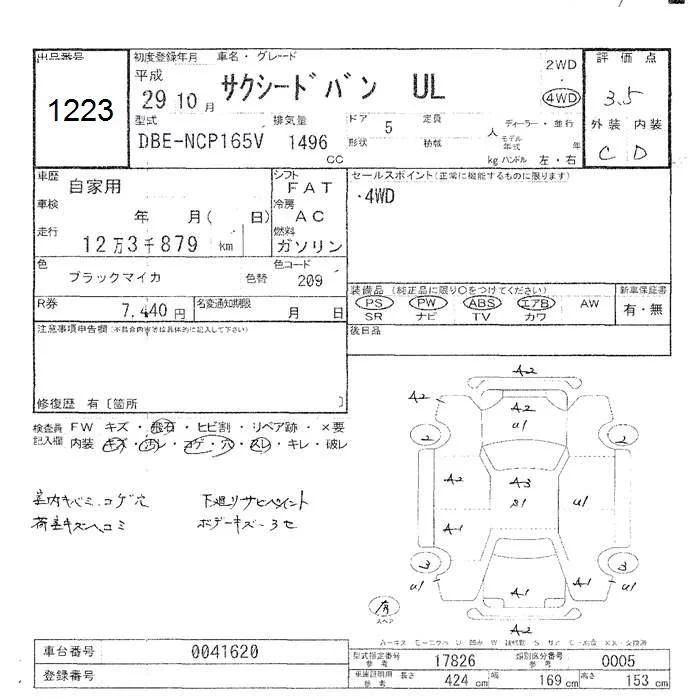 出品番号
1223
初度登録年月 車名・グレード
平成
29 10 月
サクシードバン UL
2WD
・
4WD
評価点
3.5
外装 内装
C D
型式
DBE-NCP165V
排気量
1496
cc
ドア 5 定員 人
形状 積載 kg
ディーラー・並行
モデル年式 年
ハンドル 左・右
車歴 自家用
車検 年 月( 日)
走行 12万3千879 km
シフト
FAT
冷房
AC
燃料
ガソリン
セールスポイント(正常に機能するものに限ります)
・4WD
色 ブラックマイカ 色替
色コード
209
R券 7,440 円
名変通知期限 月 日
装備品(純正品に限り○をつけてください)
PS PW ABS エアB AW
SR ナビ TV カワ
新車保証書
有・無
後日品
注意事項申告欄(不具合内容等は具体的に記入して下さい)
修復歴 有〔箇所 〕
検査員記入欄
FW キズ・飛石・ヒビ割・リペア跡・×要
内装 キズ・汚レ・コゲ・穴・スレ・キレ・破レ
室内キバミ、コゲ穴
荷室キズヘコミ
下廻リサビペイント
ボデーキズ・
A2
A2
A2
A2
U1
2
2
A2
A3
S1
U1
A1
3
3
U1
A1
A1
U1
A2
有
スペア
車台番号 0041620
登録番号
型式指定番号 参考 17826
類別区分番号 参考 0005
車庫証明用 参考 長さ 424 cm 幅 169 cm 高さ 153 cm